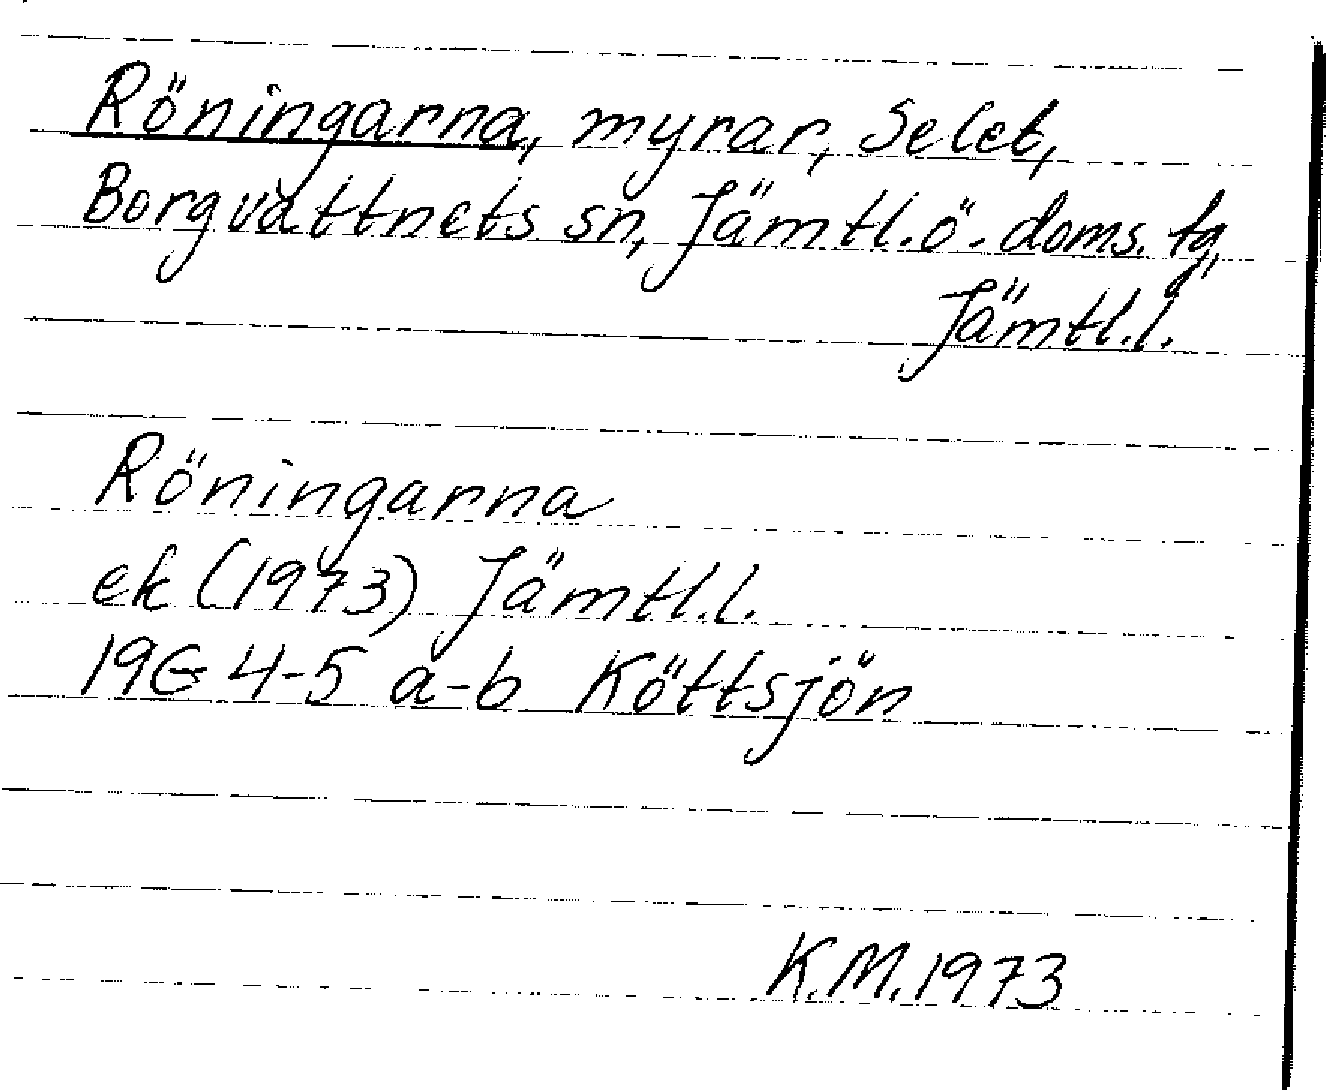 Röningarna, myrar, Selet,
Borgvattnets sn, Jämtl.ö. doms. tg,
Jämtl.l.
Röningarna
ek (1973) Jämtl.l.
19G 4-5 a-b Köttsjön
K.M. 1973